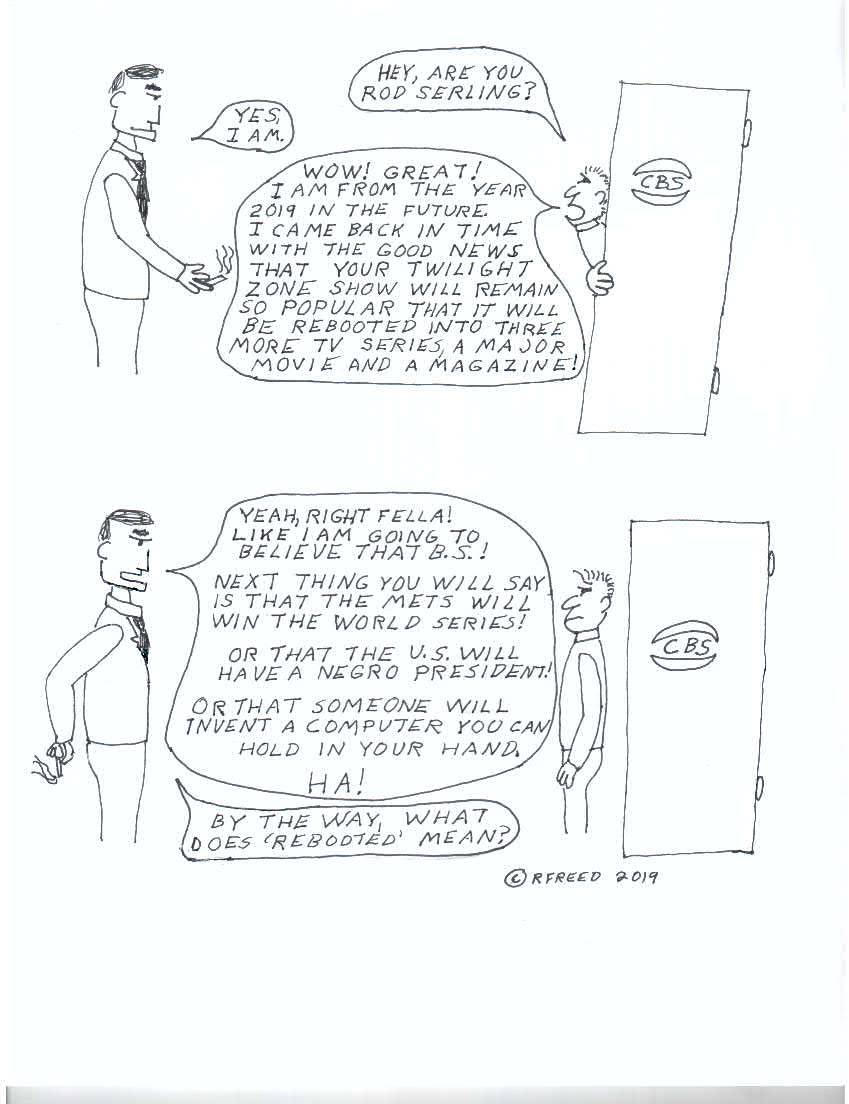 HEY, ARE YOU
ROD SERLING?
YES,
I AM.
WOW! GREAT!
I AM FROM THE YEAR
2019 IN THE FUTURE.
I CAME BACK IN TIME
WITH THE GOOD NEWS
THAT YOUR TWILIGHT
ZONE SHOW WILL REMAIN
SO POPULAR THAT IT WILL
BE REBOOTED INTO THREE
MORE TV SERIES, A MAJOR
MOVIE AND A MAGAZINE!
CBS
YEAH, RIGHT FELLA!
LIKE I AM GOING TO
BELIEVE THAT B.S.!
NEXT THING YOU WILL SAY
IS THAT THE METS WILL
WIN THE WORLD SERIES!
OR THAT THE U.S. WILL
HAVE A NEGRO PRESIDENT!
OR THAT SOMEONE WILL
INVENT A COMPUTER YOU CAN
HOLD IN YOUR HAND.
HA!
BY THE WAY, WHAT
DOES 'REBOOTED' MEAN?
CBS
© RFREED 2019